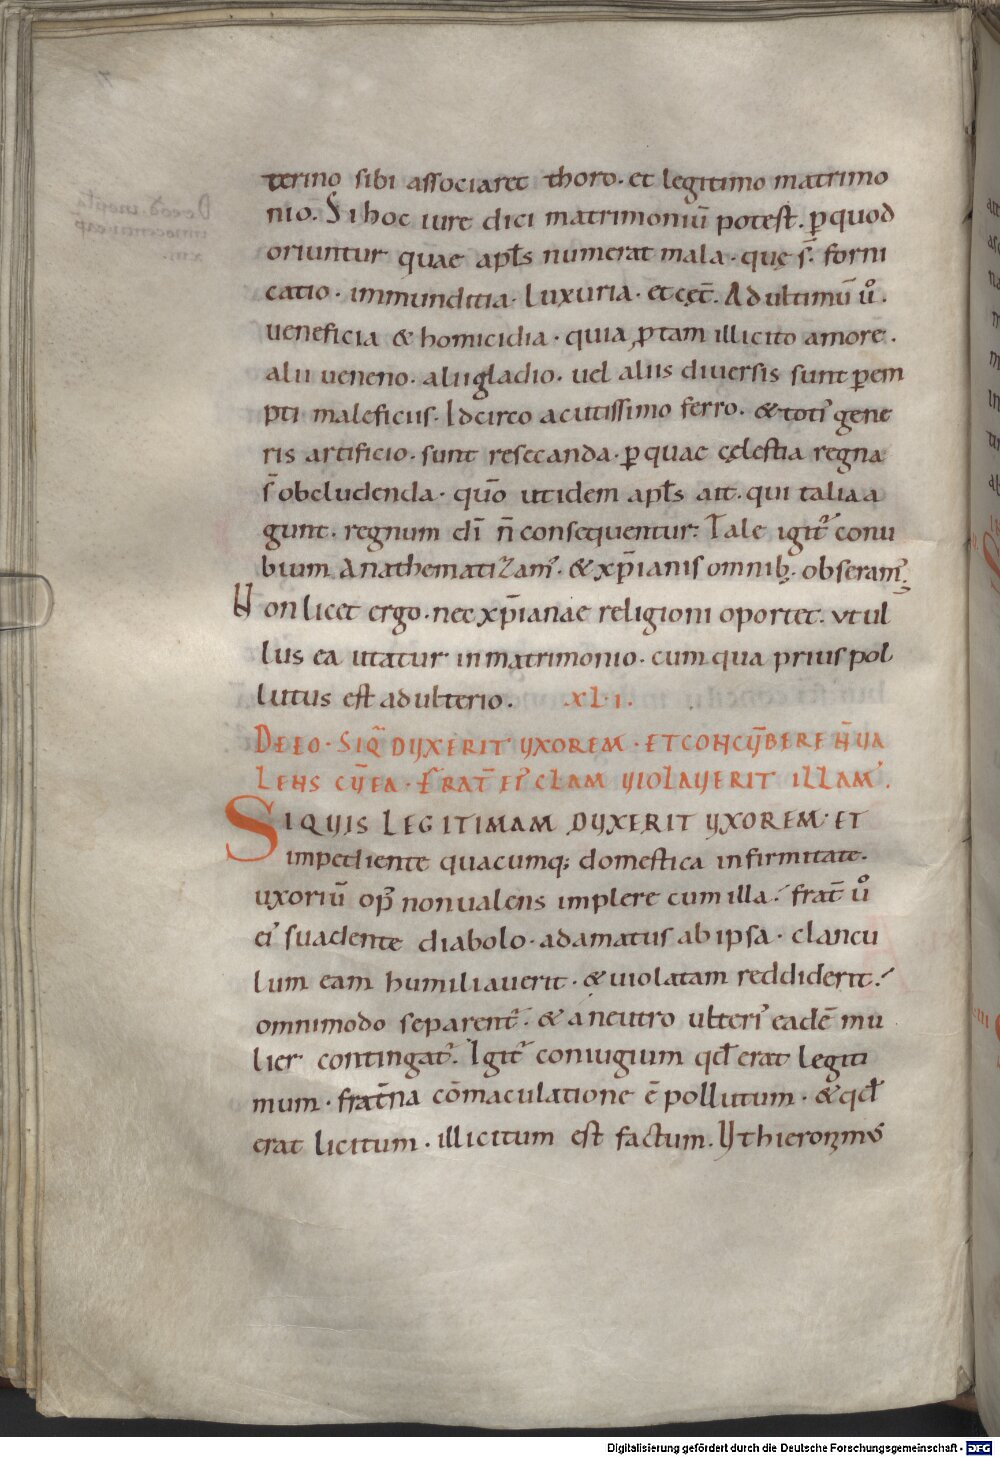 terino sibi associaret thoro· et legitimo matrimo
nio. Si hoc iure dici matrimoniū potest. ꝑ quod
oriuntur quae apl̄s numerat mala· quę s̄· forni
catio· immunditia· luxuria· et cęt̄. Ad ultimū ůo·
ueneficia & homicidia· quia ꝓ tam illicito amore·
alii ueneno· alii gladio· uel aliis diuersis sunt ꝑem
pti maleficiis· Idcirco acutissimo ferro· & toti᾽ gene
ris artificio· sunt resecanda· ꝑ quae cęlestia regna
s̄ obcludenda· quō itidem apl̄s ait· qui talia a
gunt· regnum dī n̄ consequentur: Tale igit᾽ conu
bium Anathematizam᾽· & xp̄ianis omnib; obseram᾽;
Non licet ergo· nec xp̄ianae religioni oportet· ut ul
lus ea utatur in matrimonio· cum qua prius pol
lutus est adulterio. XLI.
DE EO· SI Q᾽ DUXERIT UXOREM· ET CONCŪBERE N̄ UA
LENS CŪ EA· FRAT̄ EI᾽ CLAM UIOLAUERIT ILLAM᾽.
SIQUIS LEGITIMAM DUXERIT UXOREM· ET
impediente quacumq; domestica infirmitate·
uxoriū op᾽ non ualens implere cum illa; frat̄ ůo
ei᾽ suadente diabolo· adamatus ab ipsa· clancu
lum eam humiliauerit· & uiolatam reddiderit;
omnimodo separent᾽· & a neutro ulteri᾽ eadē mu
lier contingat᾽. Igit᾽ coniugium qđ erat legiti
mum· frat̄na cōmaculatione ē pollutum· & qđ
erat licitum· illicitum est factum. Ut hieronim᾽
Digitalisierung gefördert durch die Deutsche Forschungsgemeinschaft - DFG